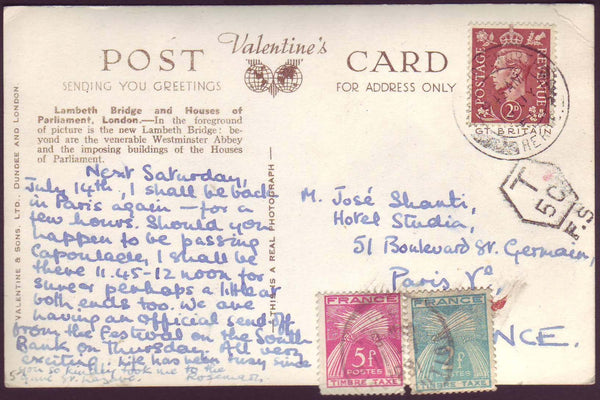 POST Valentine's CARD
SENDING YOU GREETINGS
FOR ADDRESS ONLY
Lambeth Bridge and Houses of
Parliament, London.—In the foreground
of picture is the new Lambeth Bridge: be-
yond are the venerable Westminster Abbey
and the imposing buildings of the Houses
of Parliament.
VALENTINE & SONS, LTD., DUNDEE AND LONDON.
THIS IS A REAL PHOTOGRAPH
Next Saturday,
July 14th, I shall be back
in Paris again — for a
few hours. Should you
happen to be passing
Capoulade, I shall be
there 11.45-12 noon for
sure, perhaps a little at
both ends too. We are
having an official send off
from the Festival on the South
Bank on Thursday. All very
exciting. Life has been crazy since
you so kindly took me to the
Gare St. Lazare.
Rosemary
M. José Shanti,
Hotel Studia,
51 Boulevard St. Germain,
Paris Ve
FRANCE.
POSTAGE REVENUE
2D
GT BRITAIN
T
5 C
F.S
FRANCE
5f
POSTES
TIMBRE TAXE
FRANCE
POSTES
TIMBRE TAXE